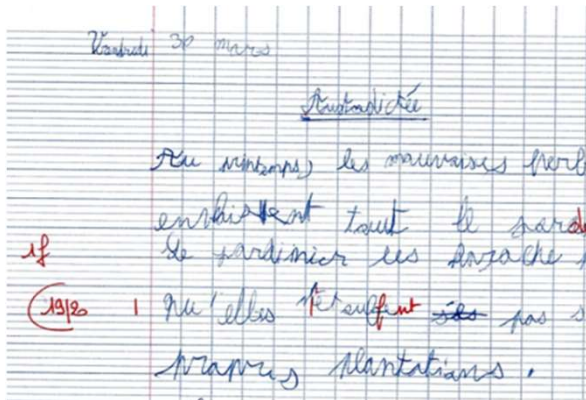 Vendredi 30 mars
Autodictée
Au printemps, les mauvaises herb
envahissent tout le jard
1f le jardinier les arrache
19/20 1 qu'elles n'étouffent pas s
propres plantations.